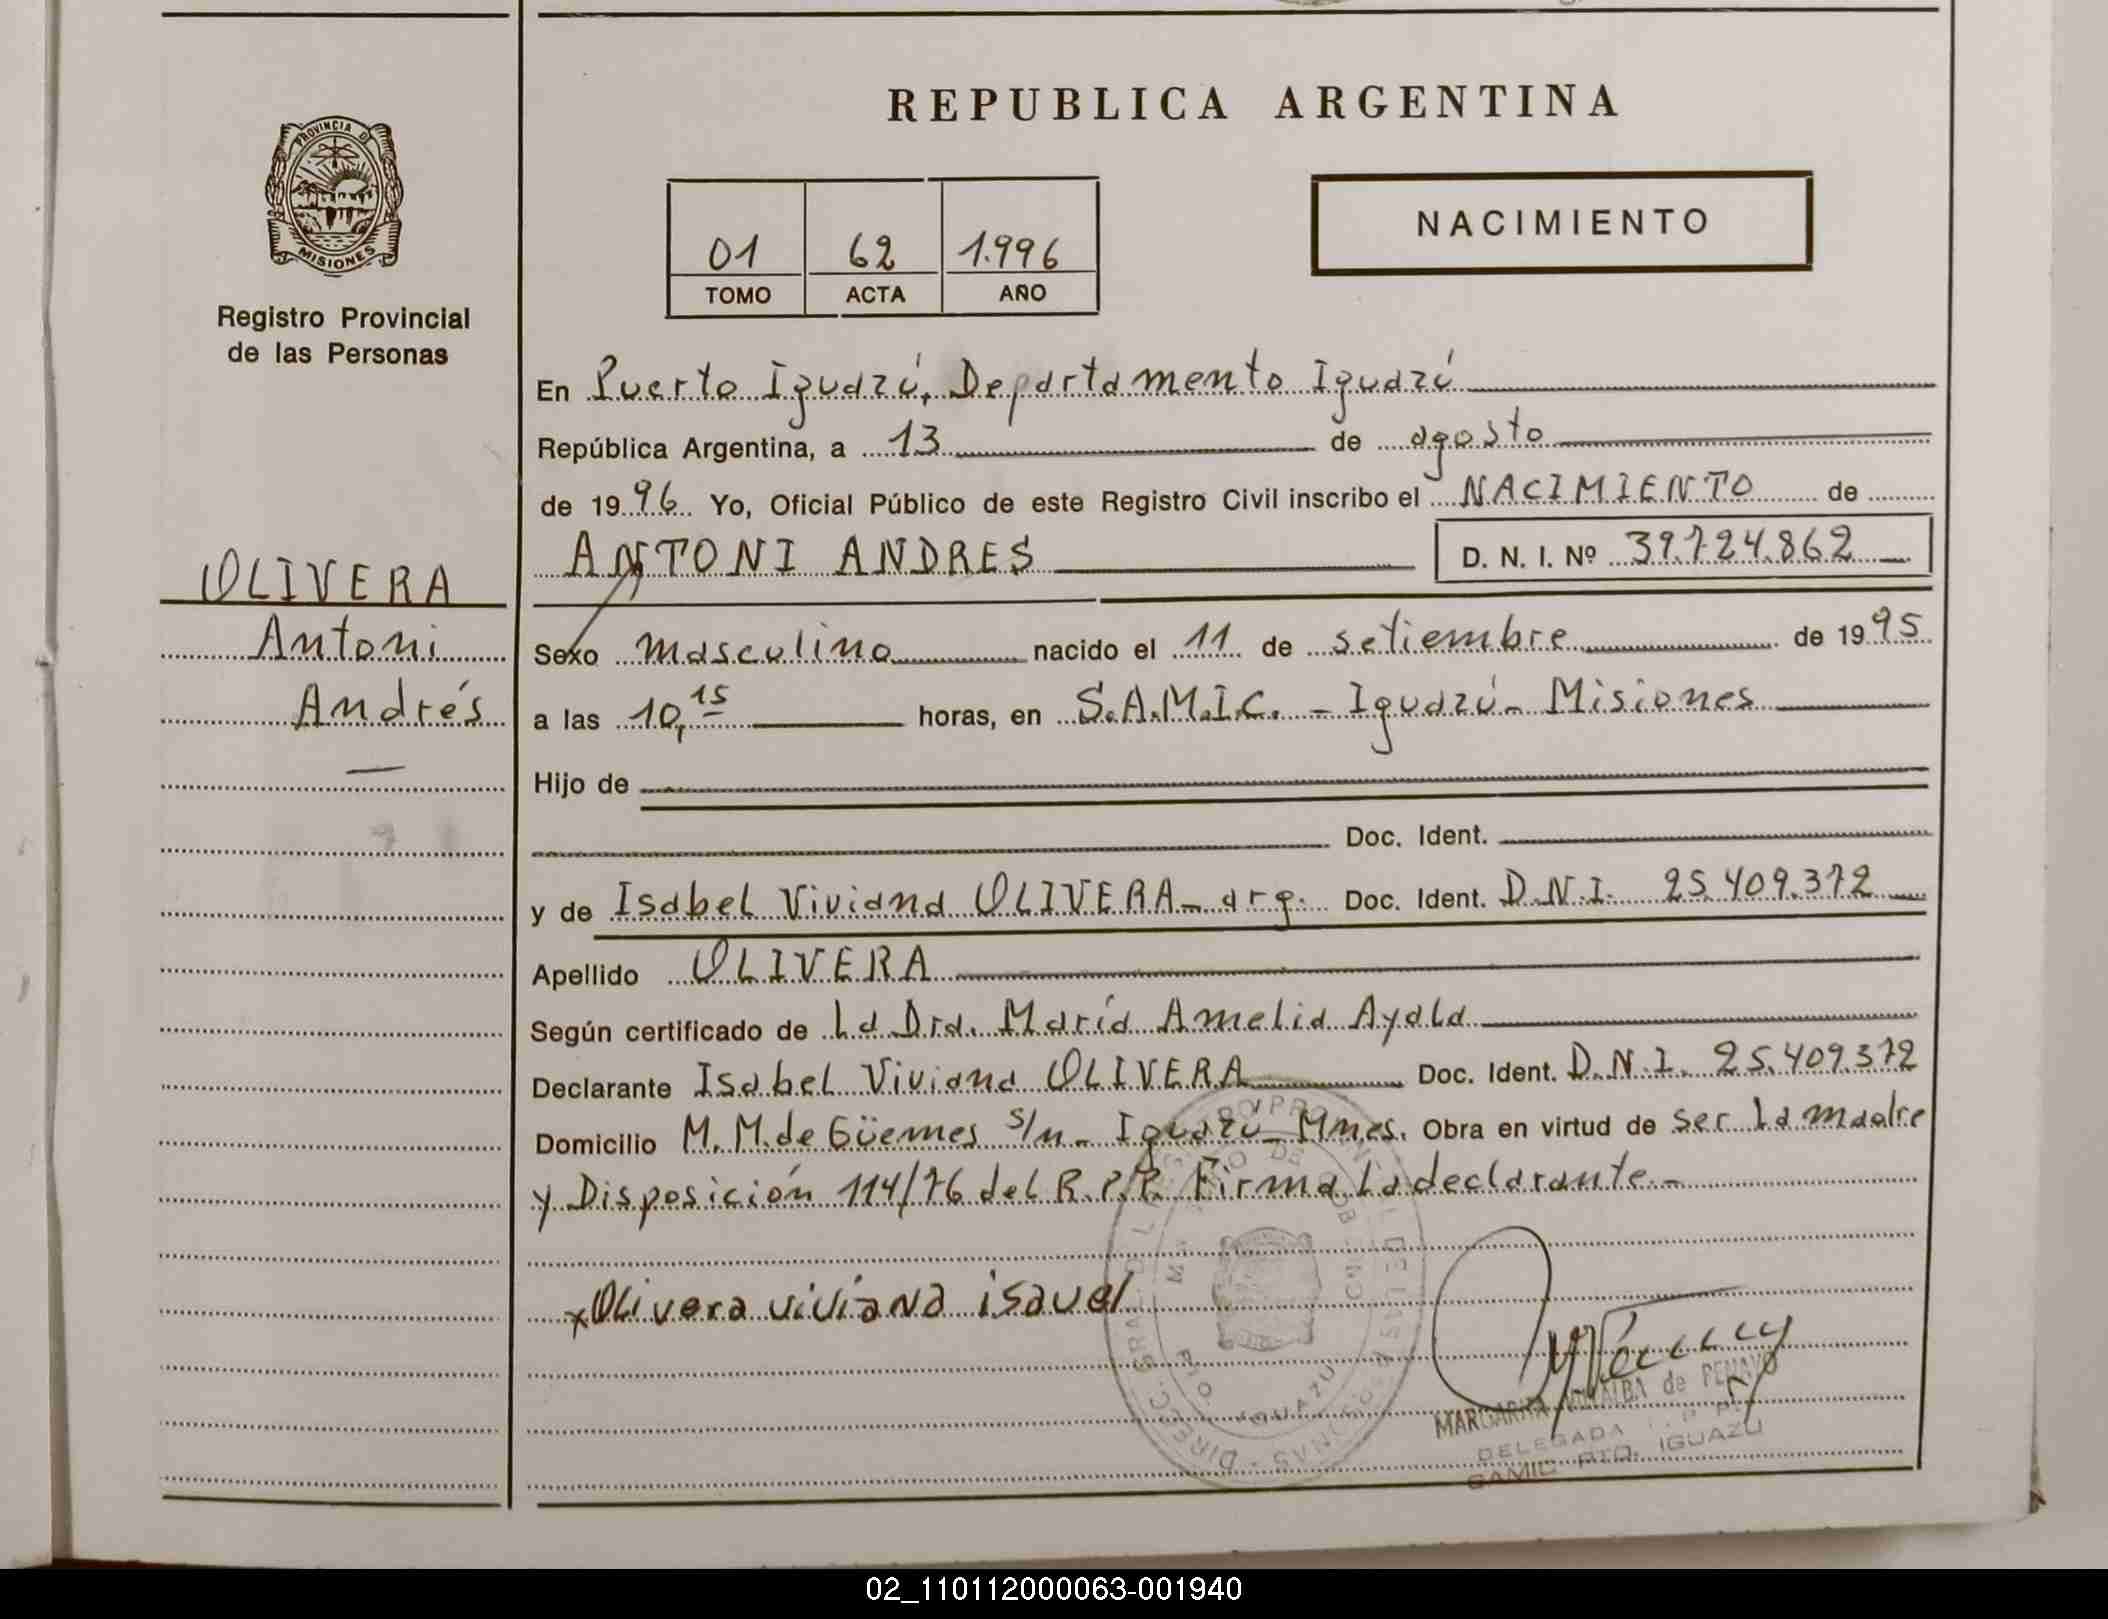 REPUBLICA ARGENTINA
PROVINCIA DE
MISIONES
Registro Provincial
de las Personas
01 62 1.996
TOMO ACTA AÑO
NACIMIENTO
En Puerto Iguazú, Departamento Iguazú
República Argentina, a 13 de agosto
de 1996 Yo, Oficial Público de este Registro Civil inscribo el NACIMIENTO de
ANTONI ANDRES D. N. I. Nº 39.724.862
OLIVERA
Antoni
Andrés
Sexo masculino nacido el 11 de setiembre de 1995
a las 10,15 horas, en S.A.M.I.C. - Iguazú - Misiones
Hijo de
Doc. Ident.
y de Isabel Viviana OLIVERA - arg. Doc. Ident. D.N.I. 25.409.372
Apellido OLIVERA
Según certificado de La Dra. María Amelia Ayala
Declarante Isabel Viviana OLIVERA Doc. Ident. D.N.I. 25.409.372
Domicilio M.M. de Güemes s/n - Iguazú - Mnes. Obra en virtud de ser la madre
y Disposición 114/76 del R.P.P. Firma la declarante.-
x Olivera viviana isavel
MARGARITA de PENAYO
DELEGADA
SAMIC PTO. IGUAZU
02_110112000063-001940